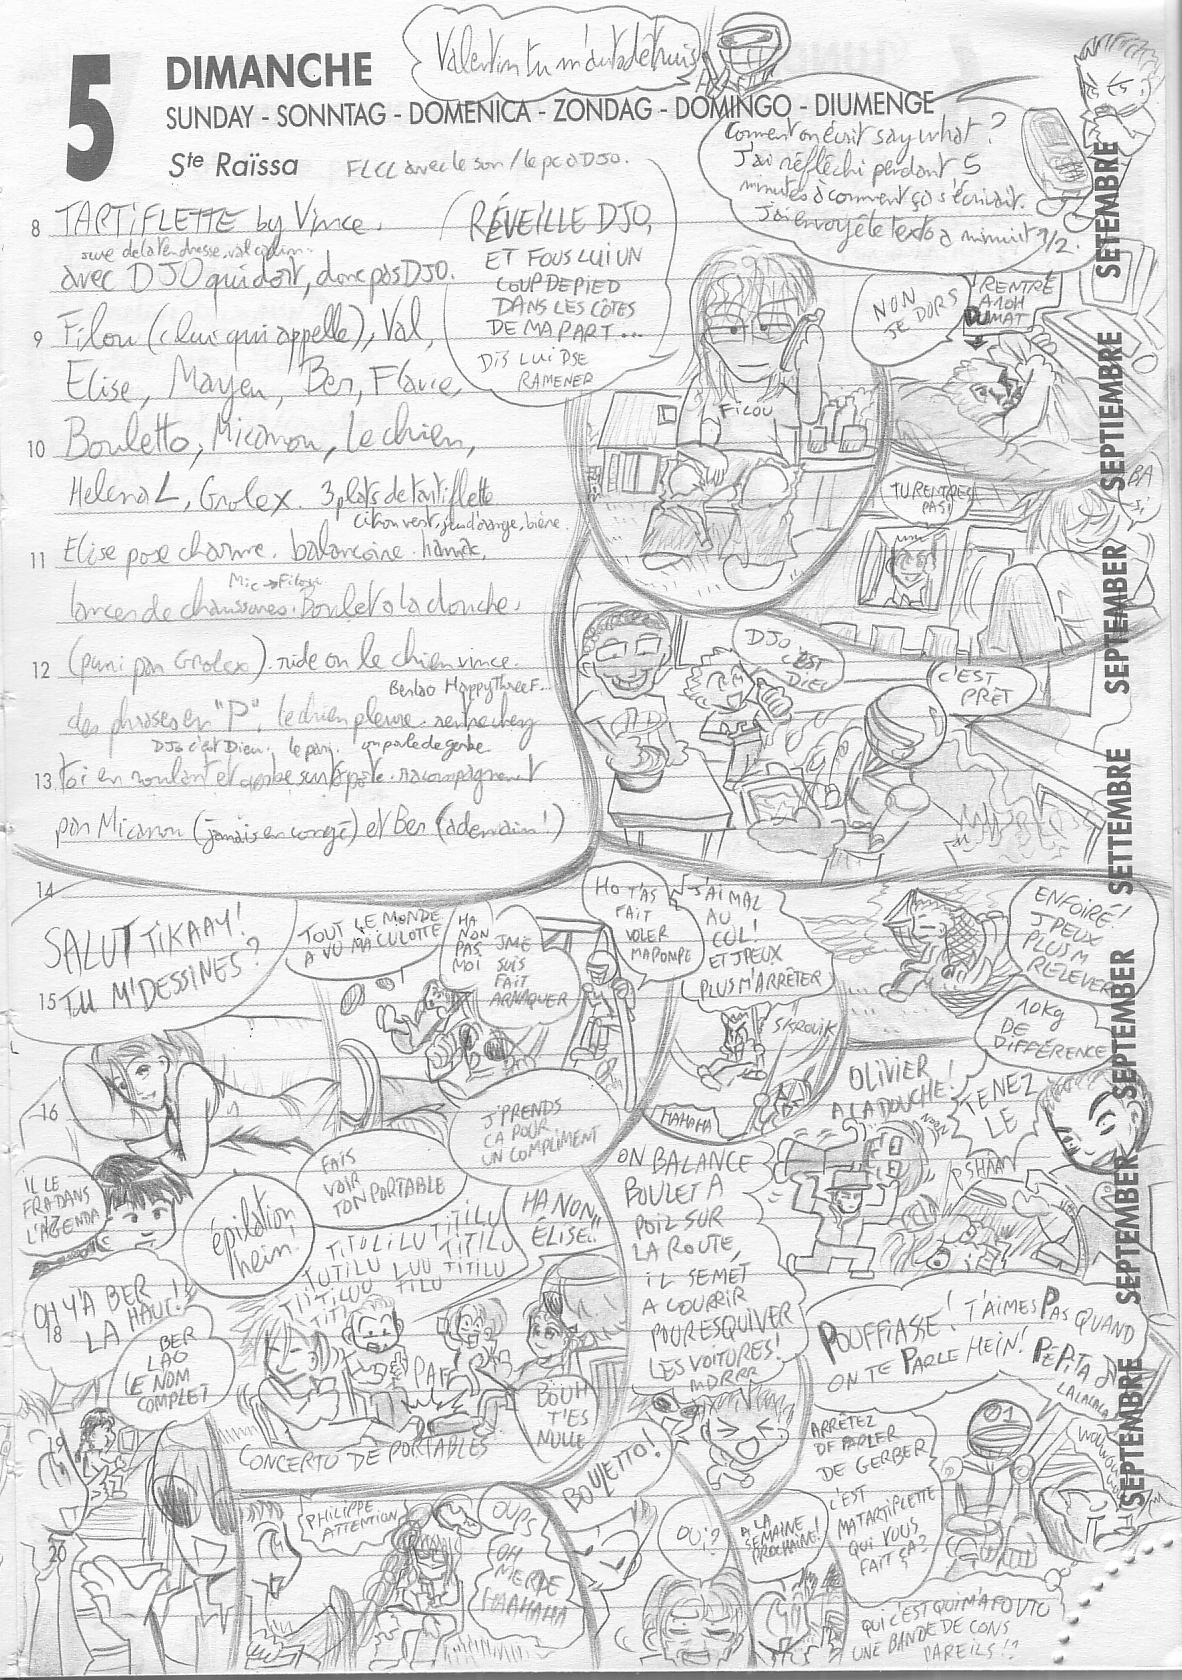 5
DIMANCHE
SUNDAY - SONNTAG - DOMENICA - ZONDAG - DOMINGO - DIUMENGE
Ste Raïssa
FLCL avec le son / le pc à DJO.
Valentin tu m'
Comment on écrit say what ?
J'ai réfléchi pendant 5
minutes à comment ça s'écrivait.
J'ai envoyé le texto à minuit 1/2.
8 TARTIFLETTE by Vince.
avec DJO qui dort, donc pas DJO.
9 Filou (celui qui appelle), Val,
Elise, Mayeu, Ber, Flavie,
10 Bouletto, Micanon, le chien,
Helena L, Grolex. 3 plats de tartiflette
citron vert, jus d'orange, bière.
11 Elise pose charme. balançoire. hamac,
Mic → Filou
lancer de chaussures. Boulet à la douche.
12 (puni par Grolex). ride on le chien vince.
Berlao HappyThreeF...
des phrases en "P". le chien pleure. rentre chez
DJo c'est Dieu. le parj. un pote de gerbe
13 toi en roulant et gerbe sur pote. racompagnement
par Micanon (jamais en congé) et Ber (à demain !)
RÉVEILLE DJO,
ET FOUS LUI UN
COUP DE PIED
DANS LES CÔTES
DE MA PART...
DIS LUI DSE
RAMENER
FILOU
NON
JE DORS
RENTRÉ
A 10H
DU MAT
TU RENTRES
PAS!
DJO
C'EST
DIEU
C'EST
PRÊT
14
SALUT TIKAAY !
TU M'DESSINES ?
15
TOUT LE MONDE
A VU MA CULOTTE
HA
NON
PAS
MOI
JME
SUIS
FAIT
ARNAQUER
HO T'AS
FAIT
VOLER
MA POMPE
J'AI MAL
AU
CUL !
ET J'PEUX
PLUS M'ARRÊTER
SKROUIK
HAHAHA
ENFOIRÉ !
J'PEUX
PLUS M
RELEVER
10KG
DE
DIFFÉRENCE
16
J'PRENDS
ÇA POUR
UN COMPLIMENT
OLIVIER
A LA DOUCHE !
NOON
TENEZ
LE
PSHAAA
IL LE
FRA DANS
L'AGENDA
17
épilation
hein.
FAIS
VOIR
TON PORTABLE
HA NON,
ÉLISE..
TITOLILU TITILU
TUTILU LUU TITILU
TIITILUU TILU
ON BALANCE
BOULET A
POIL SUR
LA ROUTE,
IL SE MET
A COURRIR
POUR ESQUIVER
LES VOITURES !
MDRRR
OH Y'A BER
LA HAUT !
18
BER
LAO
LE NOM
COMPLET
PAF
BOUH
T'ES
NULLE
CONCERTO DE PORTABLES
POUFFIASSE ! T'AIMES PAS QUAND
ON TE PARLE HEIN ! PÉPITA
LALALALA
01
ARRÊTEZ
DE PARLER
DE GERBER
19
20
PHILIPPE
ATTENTION
OUPS
OH
MERDE
HAHAHA
BOULETTO !
OUI ?
A LA
SEMAINE
PROCHAINE !
C'EST
MA TARTIFLETTE
QUI VOUS
FAIT ÇA ?
QUI C'EST QUI M'A FOUTU
UNE BANDE DE CONS
PAREILS !?
SETEMBRE
SEPTIEMBRE
SEPTEMBER
SETTEMBRE
SEPTEMBER
SEPTEMBER
SEPTEMBRE